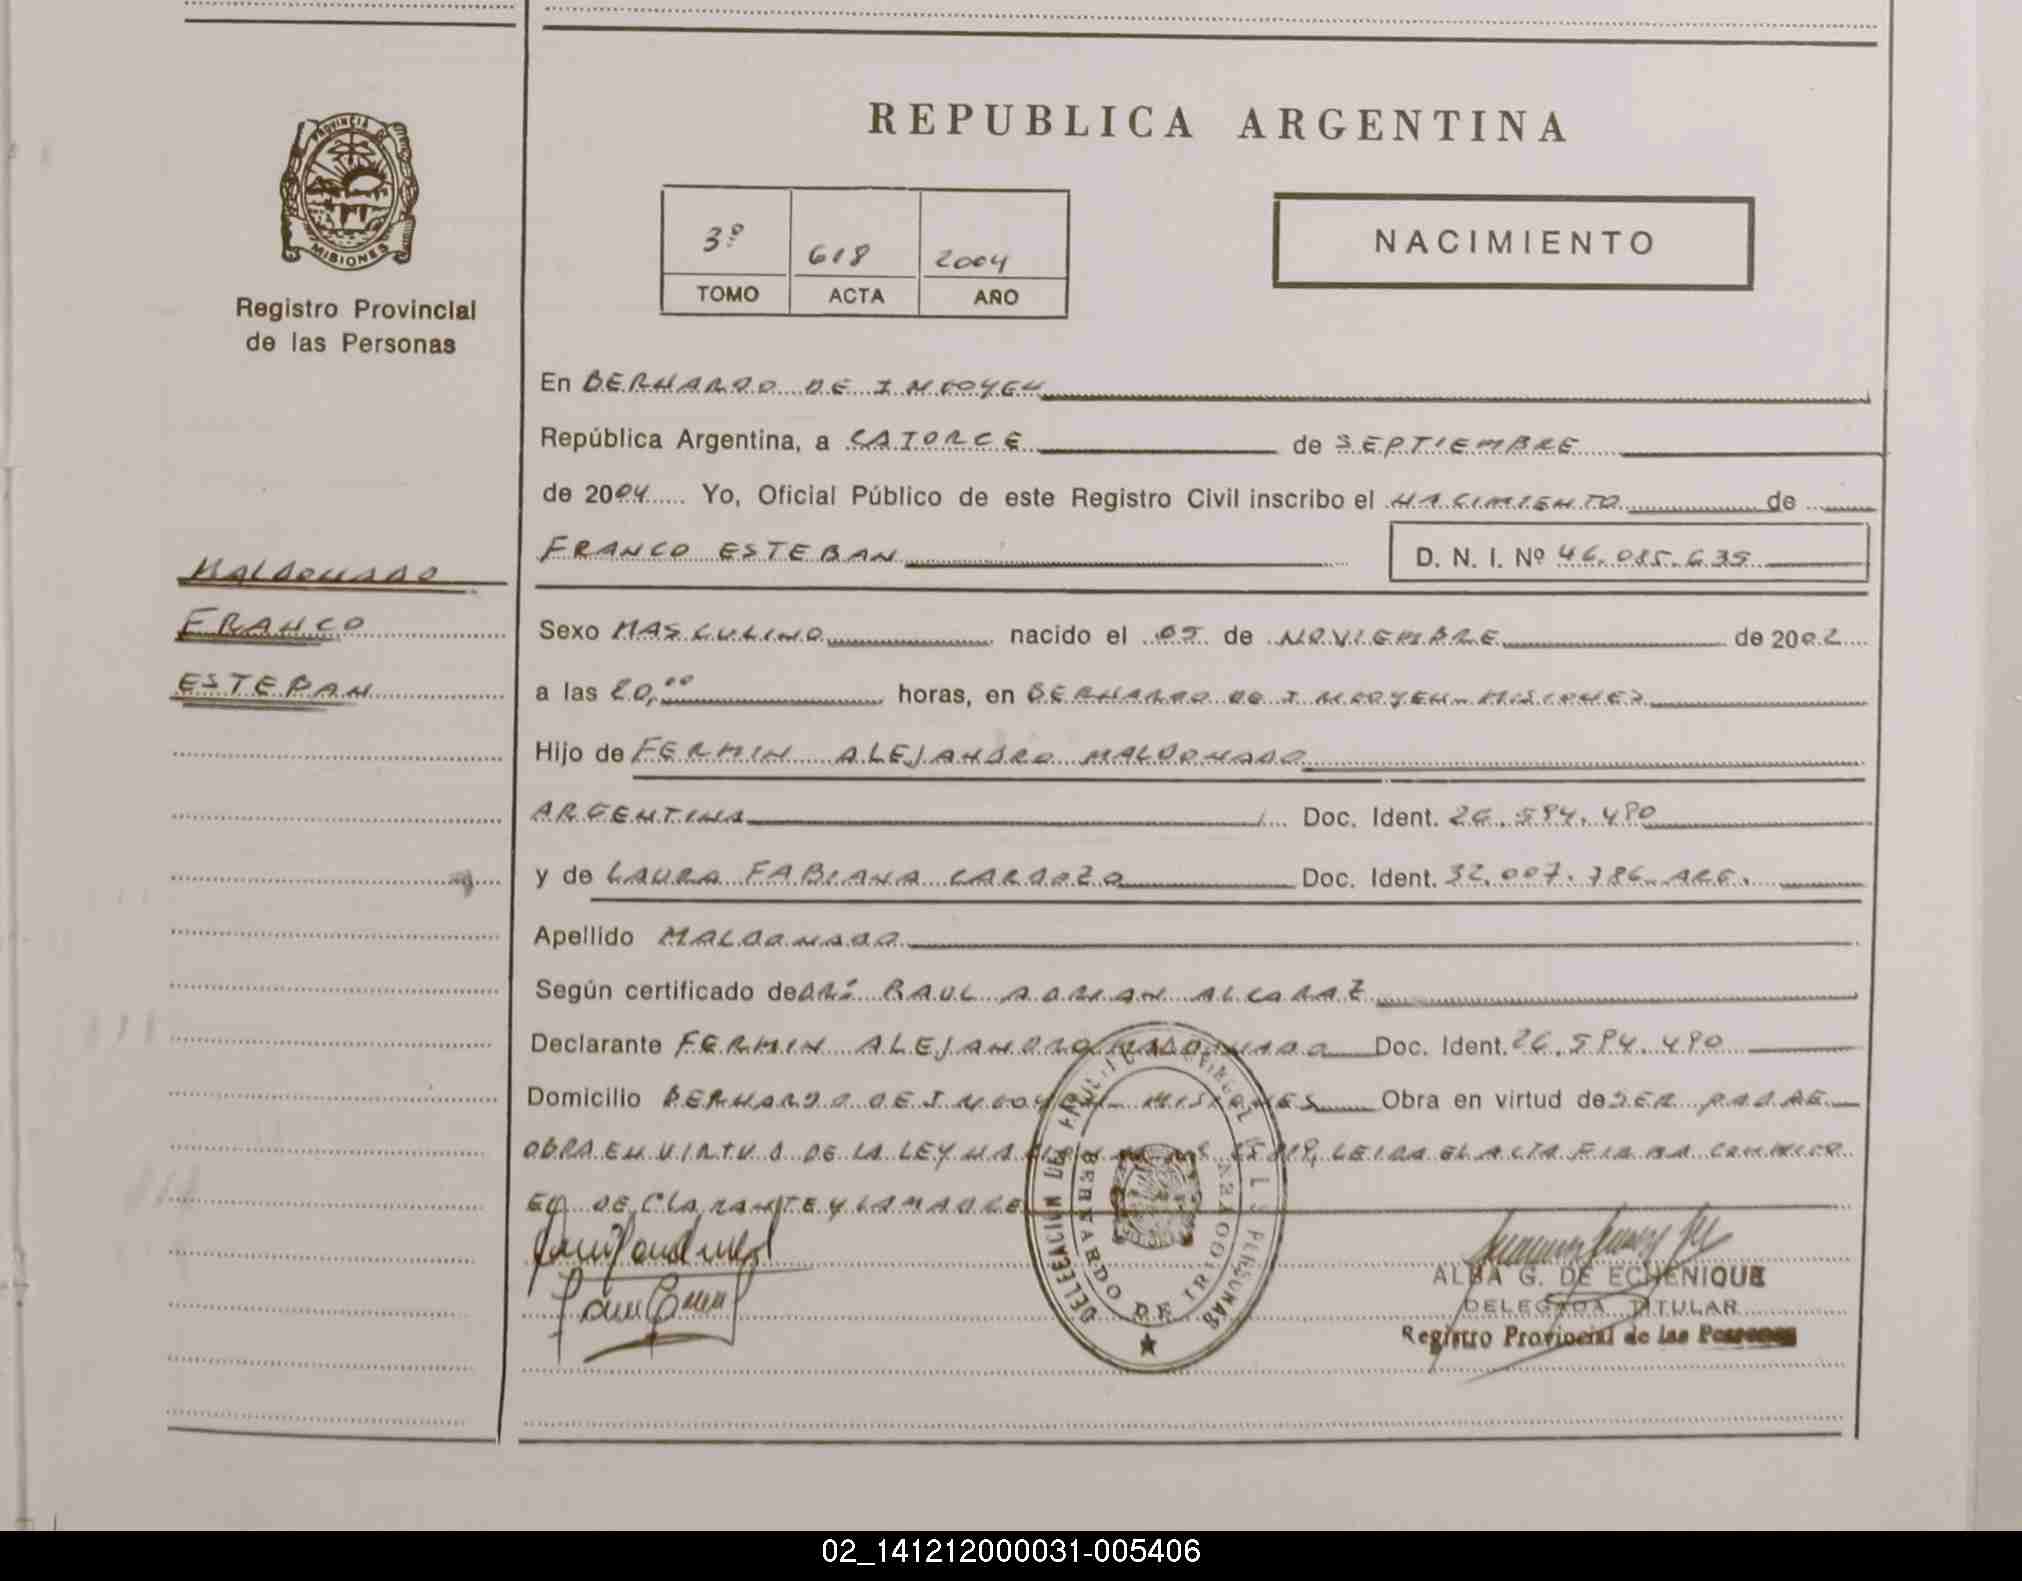 REPUBLICA ARGENTINA
PROVINCIA DE MISIONES
Registro Provincial
de las Personas
3º 618 2004
TOMO ACTA AÑO
NACIMIENTO
En BERNARDO DE IRIGOYEN
República Argentina, a CATORCE de SEPTIEMBRE
de 2004 Yo, Oficial Público de este Registro Civil inscribo el NACIMIENTO de
FRANCO ESTEBAN D. N. I. Nº 46.085.639
MALDONADO
FRANCO
ESTEBAN
Sexo MASCULINO nacido el 05 de NOVIEMBRE de 2002
a las 20,00 horas, en BERNARDO DE IRIGOYEN-MISIONES
Hijo de FERMIN ALEJANDRO MALDONADO
ARGENTINA Doc. Ident. 26.594.490
y de LAURA FABIANA CARDOZO Doc. Ident. 32.007.786 ARG.
Apellido MALDONADO
Según certificado de DR: RAUL ADRIAN ALCARAZ
Declarante FERMIN ALEJANDRO MALDONADO Doc. Ident. 26.594.490
Domicilio BERNARDO DE IRIGOYEN - MISIONES Obra en virtud de SER PADRE
OBRA EN VIRTUD DE LA LEY NACIONAL Nº LEIDA EL ACTA FIRMA CONMIGO
EL DECLARANTE Y LA MADRE
DELEGACION DEL REGISTRO PROVINCIAL DE LAS PERSONAS
BERNARDO DE IRIGOYEN
ALBA G. DE ECHENIQUE
DELEGADA TITULAR
Registro Provincial de las Personas
02_141212000031-005406